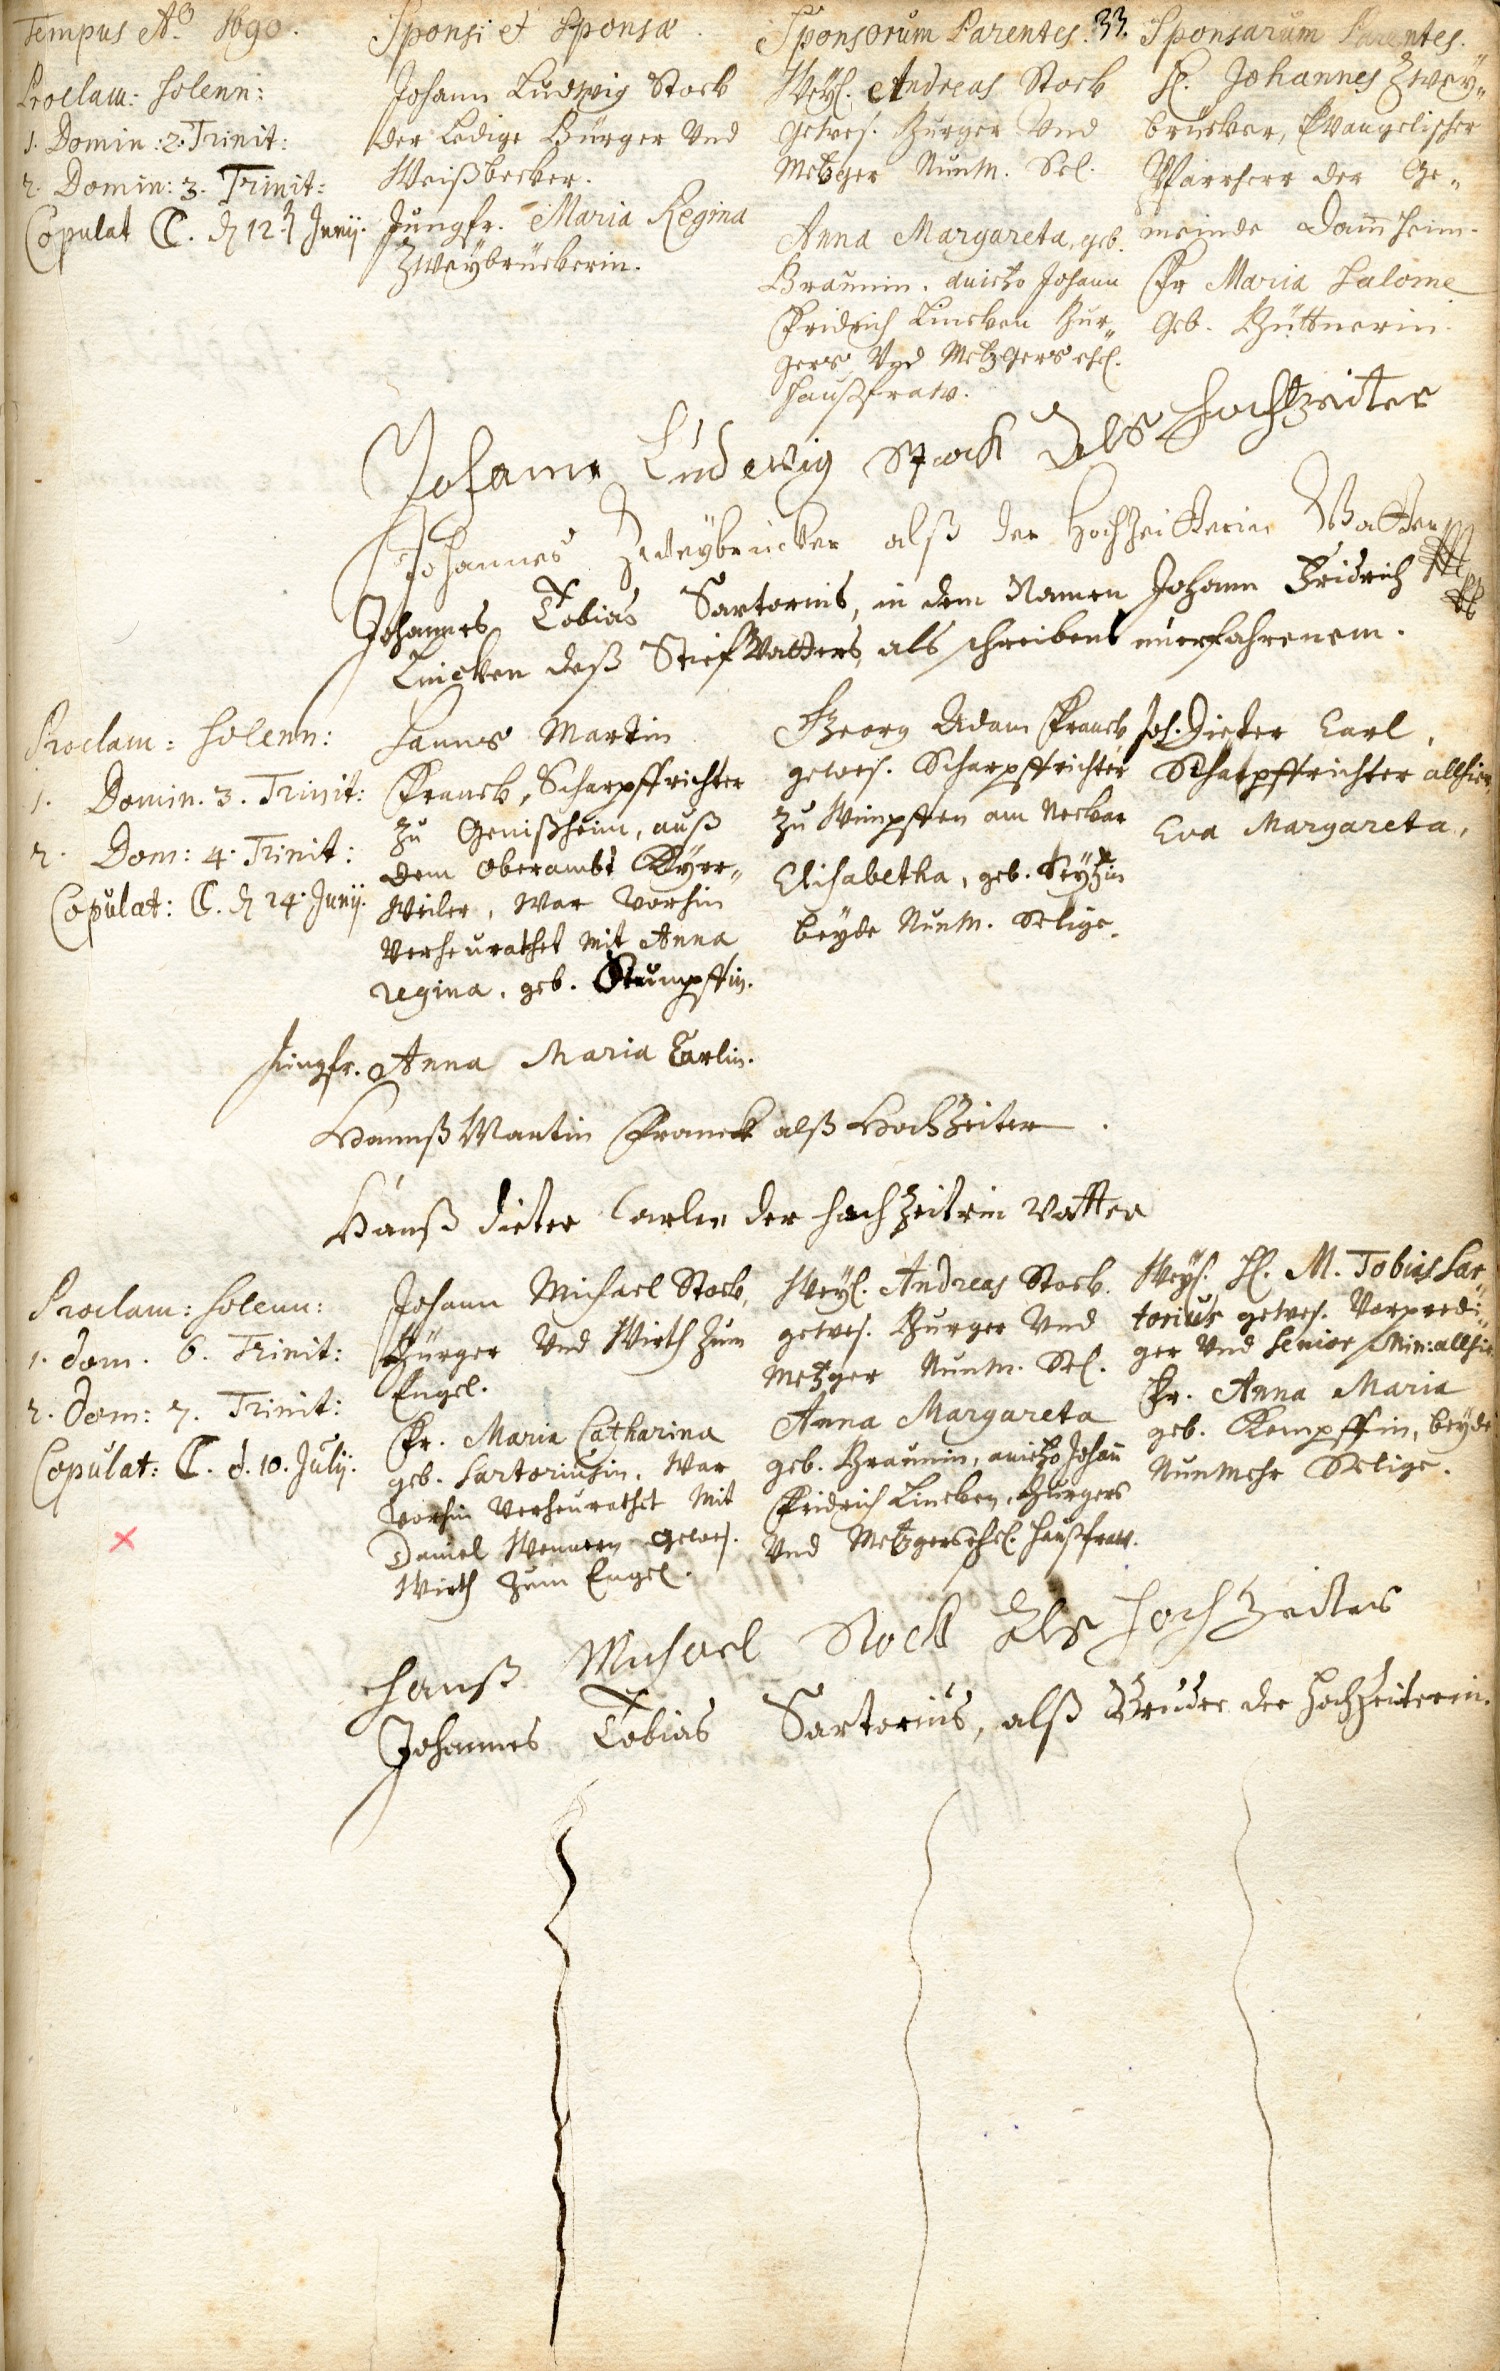 Tempus Aō 1690.
Sponsi et Sponsæ.
Sponsorum Parentes.
33.
Sponsarum Parentes.
Proclam: solenn:
1. Domin: 2. Trinit:
2. Domin: 3. Trinit:
Copulat C. d 12. Junij.
Johann Ludwig Stock
der Ledige Bürger Vnd
Weißbecker.
Jungfr. Maria Regina
Zweÿbrückerin.
Weÿl. Andreas Stock
gewes. Burger Vnd
Metzger Nunm. Sel.
Anna Margareta, geb.
Braunin. anietzo Johann
Fridrich Lincken Bur„
gers Vnd Metzgers ehel.
Haußfraw.
H. Johannes Zweÿ„
brücker, Evangelischer
Pfarrherr der Ge„
meinde Dam̄heim.
Fr Maria Salome
Geb. Büttnerin.
Johann Ludwig Stock Als Hochtzeiter
Johannes Zweÿbrücker alß der Hochzeitterin Vatter
Johannes Tobias Sartorius, in dem Namen Johann Fridrich
Lincken deß StiefVatters, als schreibens unerfahrenem.
Proclam: solenn:
1. Domin. 3. Trinit:
2. Dom: 4. Trinit:
Copulat: C. d 24. Junij.
Hanns Martin
Franck, Scharpffrichter
zu Genißheim, auß
dem Oberambt Kÿrr„
Weiler, War Vorhin
Verheurathet Mit Anna
regina, geb. Stumpffin.
Jungfr. Anna Maria Carlin.
Georg Adam Franck
gewes. Scharpffrichter
zu Wimpffen am Neckar
Elisabetha, geb. Seÿtzin
beÿde Nunm. Selige.
Joh. Dieter Carl,
Scharpffrichter allhier,
Eva Margareta,
Hannß Martin Franck alß HochZeiter.
Hanß dieter Carle der hochzeitrin Vatter
Proclam: solenn:
1. Dom. 6. Trinit:
2. Dom: 7. Trinit:
Copulat: C. d. 10. Julij.
Johann Michael Stock,
Bürger Vnd Wirth Zum
Engel.
Fr. Maria Catharina
geb. Sartoriusin, War
Vorhin Verheurathet Mit
Daniel Wennern gewes.
Wirth Zum Engel.
Weÿl. Andreas Stock.
gewes. Burger Vnd
Metzger Nunm. Sel.
Anna Margareta
geb. Braunin, anietzo Johan̄
Fridrich Lincken, Burgers
Vnd Metzgers ehel. Haußfraw.
Weÿl. H. M. Tobias Sar„
torius gewes. Vorpredi„
ger Vnd Senior Min: allhie.
Fr. Anna Maria
geb. Kempffin, beÿde
Nunmehr Selige.
Hanß Michael Stock Als Hochzeiter
Johannes Tobias Sartorius, alß Bruder der Hochzeiterin.